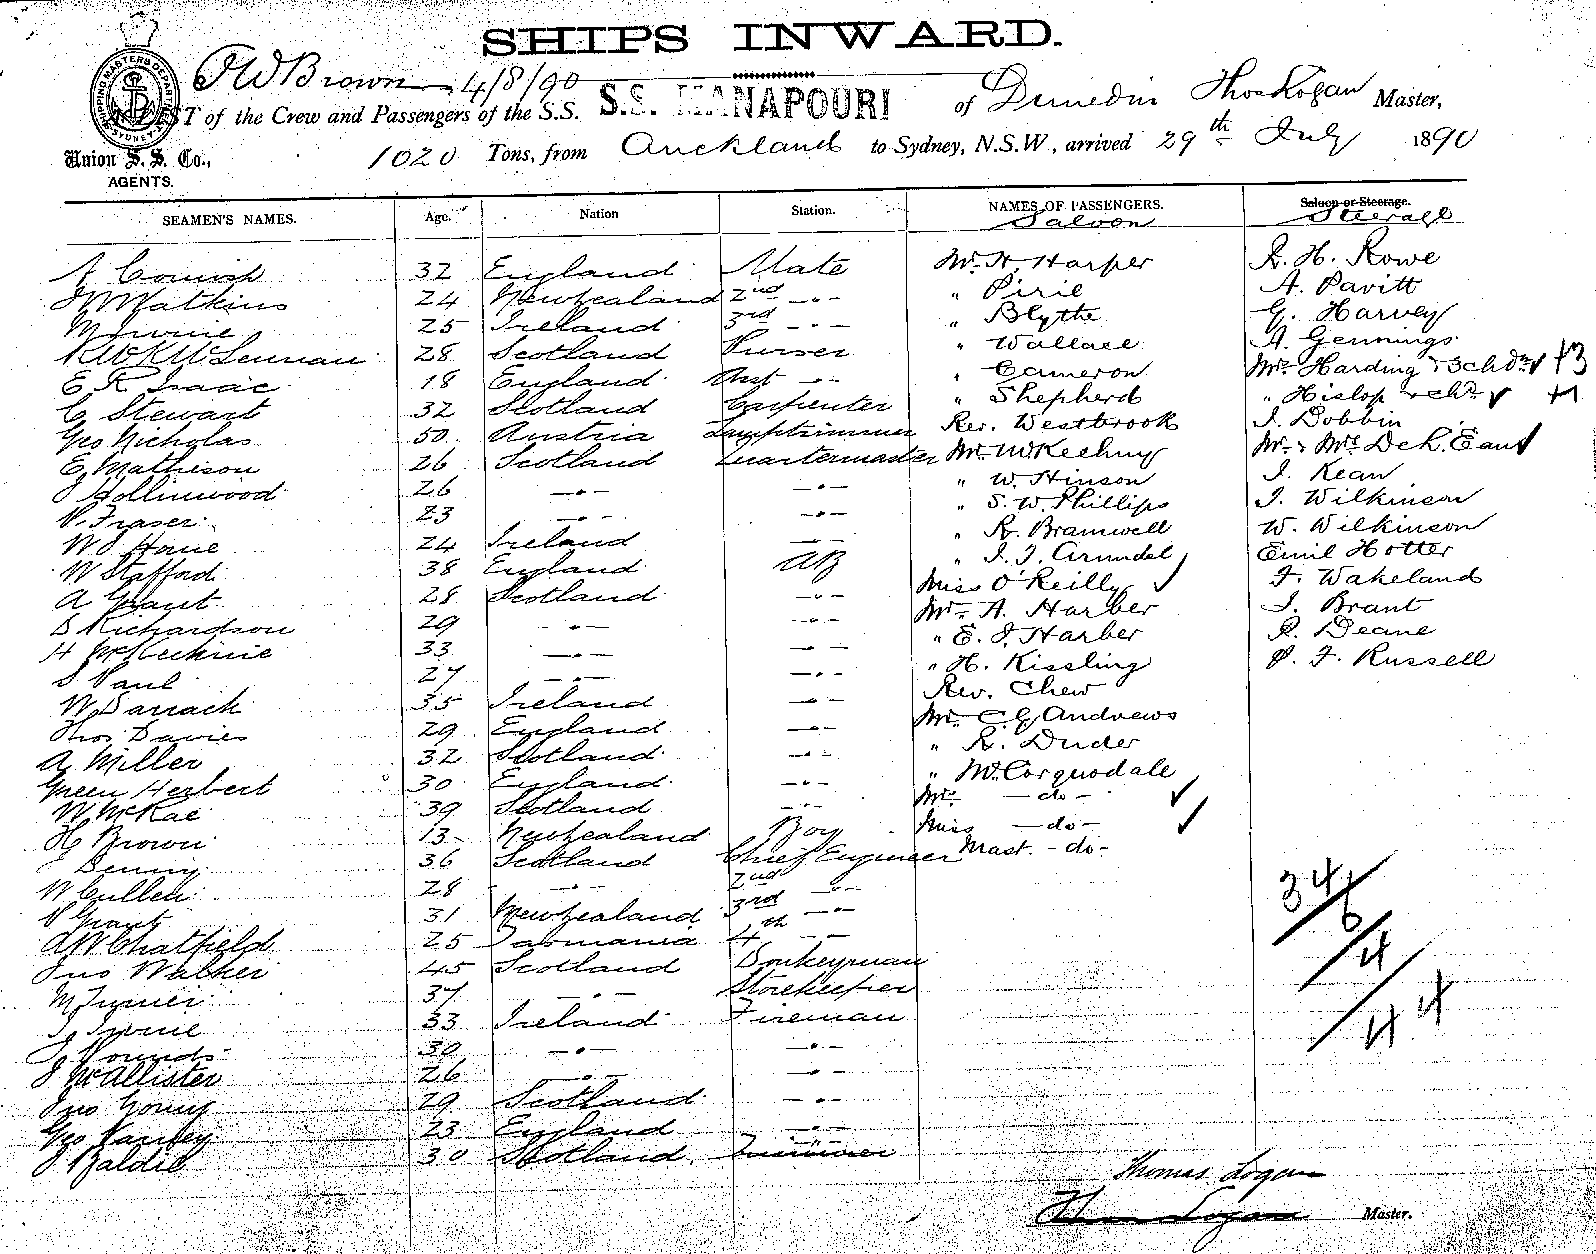 SHIPS INWARD.
SHIPPING MASTERS DEPARTMENT SYDNEY
P W Brown 4/8/90
A LIST of the Crew and Passengers of the S.S. S.S. MANAPOURI of Dunedin Thos Logan Master,
Union S. S. Co.,
AGENTS.
1020 Tons, from Auckland to Sydney, N.S.W., arrived 29th July 1890
SEAMEN'S NAMES. Age. Nation Station. NAMES OF PASSENGERS. Saloon or Steerage.
Saloon Steerage
Cornish 32 England Mate Mr. H. Harper R. H. Rowe
Watkins 24 New Zealand 2nd -"- " Pirie A. Pavitt
25 Ireland 3rd -"- " Blythe G. Harvey
McLennan 28 Scotland Purser " Wallace A. Gennings
E R Isaac 18 England Asst -"- " Cameron Mrs. Harding + 3 chdn +3
C Stewart 32 Scotland Carpenter " Shepherd " Hislop + chd +1
Geo Nicholas 50 Austria Lamptrimmer Rev. Westbrook J. Dobbin
E Matheson 26 Scotland Quartermaster Mr. Mr. & Mrs.
J Hollinwood 26 -"- -"- " W. Hinson J. Kean
Fraser 23 -"- -"- " S. W. Phillips J. Wilkinson
24 Ireland -"- " R. Bramwell W. Wilkinson
W Stafford 38 England AB " J. J. Arundel Emil Hotter
A Grant 28 Scotland -"- Miss O'Reilly F. Wakeland
D Richardson 29 -"- -"- Mr. A. Harber J. Brant
H McKechnie 33 -"- -"- " E. J. Harber R. Deane
S Paul 27 -"- -"- " H. Kissling P. F. Russell
W Darrach 35 Ireland -"- Rev. Chew
Thos Davies 29 England -"- Mr. C. G. Andrews
A Miller 32 Scotland -"- " R. Duder
Green Herbert 30 England -"- " McCorquodale
W McRae 39 Scotland -"- Mrs. -do-
H Brown 13 New Zealand Boy Miss -do-
Denny 36 Scotland Chief Engineer Mast. -do-
W Cullen 28 -"- 2nd -"-
Grant 31 New Zealand 3rd -"-
A W Chatfield 25 Tasmania 4th -"-
Jno Walker 45 Scotland Donkeyman
M Turner 37 -"- Storekeeper
33 Ireland Fireman
J Pounds 30 -"- -"-
J McAllister 26 -"- -"-
Jno 29 Scotland -"-
Geo 23 England -"-
J Baldie 30 Scotland Trimmer
34/6/4/44
Thomas Logan
Thomas Logan Master.